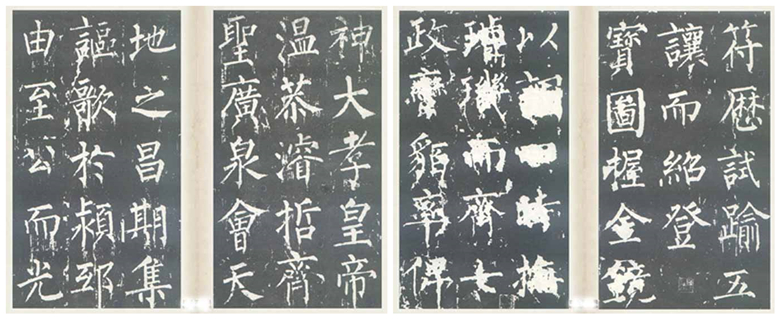 神大孝皇帝
温恭濬哲齊
聖廣泉會天
地之昌期集
謳歌於潁邸
由至公而光
符歷試踰五
讓而紹登
寶圖握金鏡
以撫
璣而齊七
政貊率俾